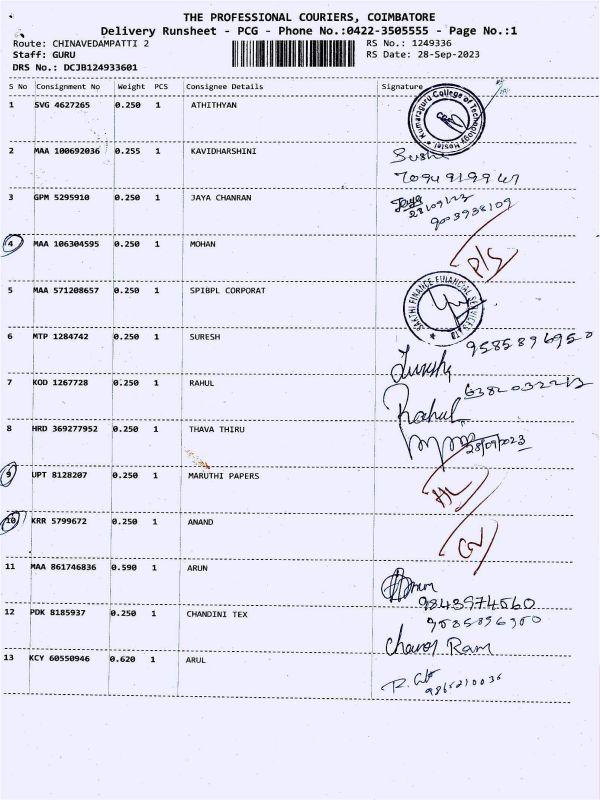 THE PROFESSIONAL COURIERS, COIMBATORE
Delivery Runsheet - PCG - Phone No.:0422-3505555 - Page No.:1
Route: CHINAVEDAMPATTI 2 RS No.: 1249336
Staff: GURU RS Date: 28-Sep-2023
DRS No.: DCJB124933601
S No Consignment No Weight PCS Consignee Details Signature
1 SVG 4627265 0.250 1 ATHITHYAN
Kumaraguru College of Technology Hostel
2 MAA 100692036 0.255 1 KAVIDHARSHINI
3 GPM 5295910 0.250 1 JAYA CHANRAN
28/09/23
9003938109
4 MAA 106304595 0.250 1 MOHAN
P/S
5 MAA 571208657 0.250 1 SPIBPL CORPORAT
SAKTHI FINANCE FINANCIAL SERVICES LTD
6 MTP 1284742 0.250 1 SURESH
9585896950
7 KOD 1267728 0.250 1 RAHUL
Rahul
8 HRD 369277952 0.250 1 THAVA THIRU
28/09/2023
9 UPT 8128207 0.250 1 MARUTHI PAPERS
HL
10 KRR 5799672 0.250 1 ANAND
11 MAA 861746836 0.590 1 ARUN
9843974560
12 PDK 8185937 0.250 1 CHANDINI TEX
Ram
13 KCY 60550946 0.620 1 ARUL